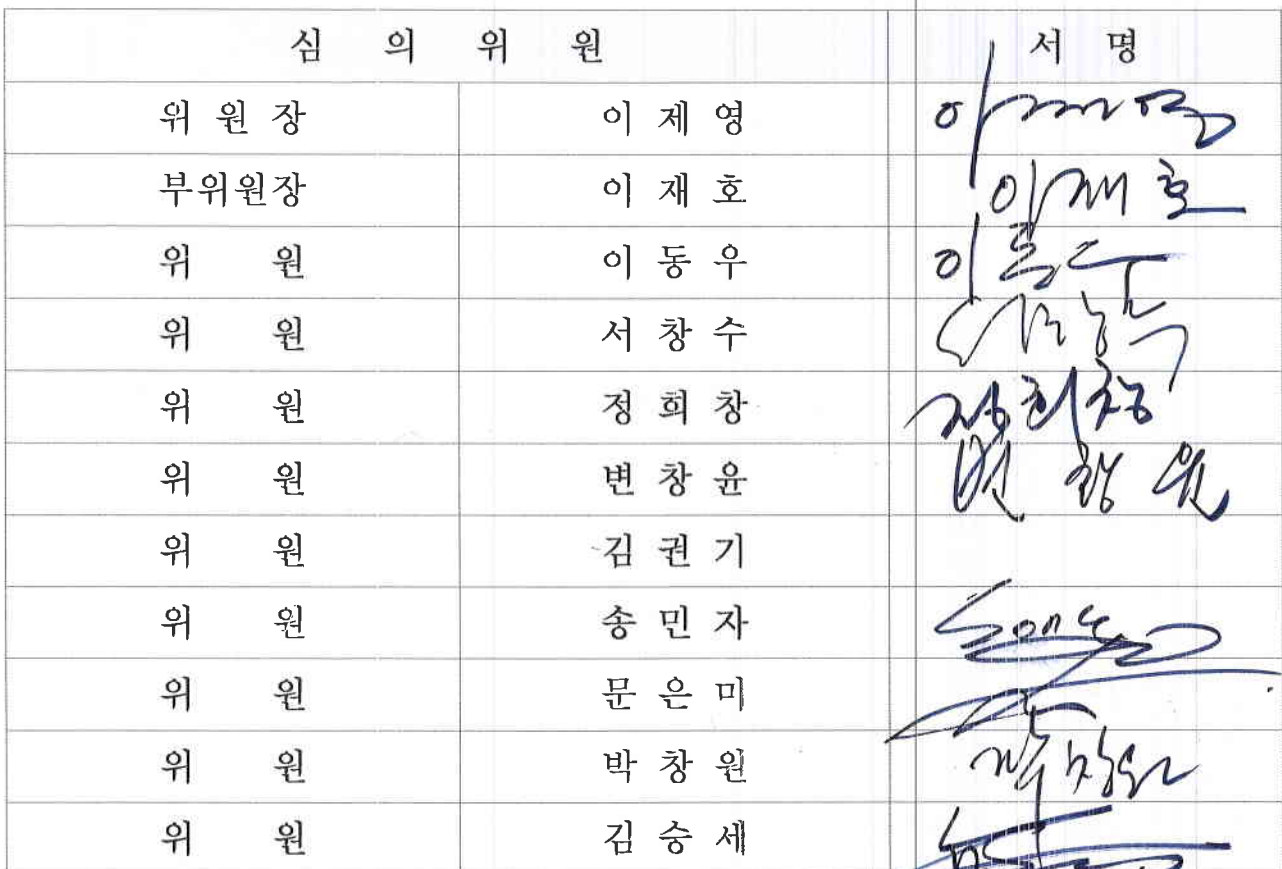 심 의 위 원 서 명
위 원 장 이 제 영 이제영
부위원장 이 재 호 이재호
위 원 이 동 우 이동우
위 원 서 창 수
위 원 정 희 창 정희창
위 원 변 창 윤 변창윤
위 원 김 권 기
위 원 송 민 자
위 원 문 은 미
위 원 박 창 원 박창원
위 원 김 승 세